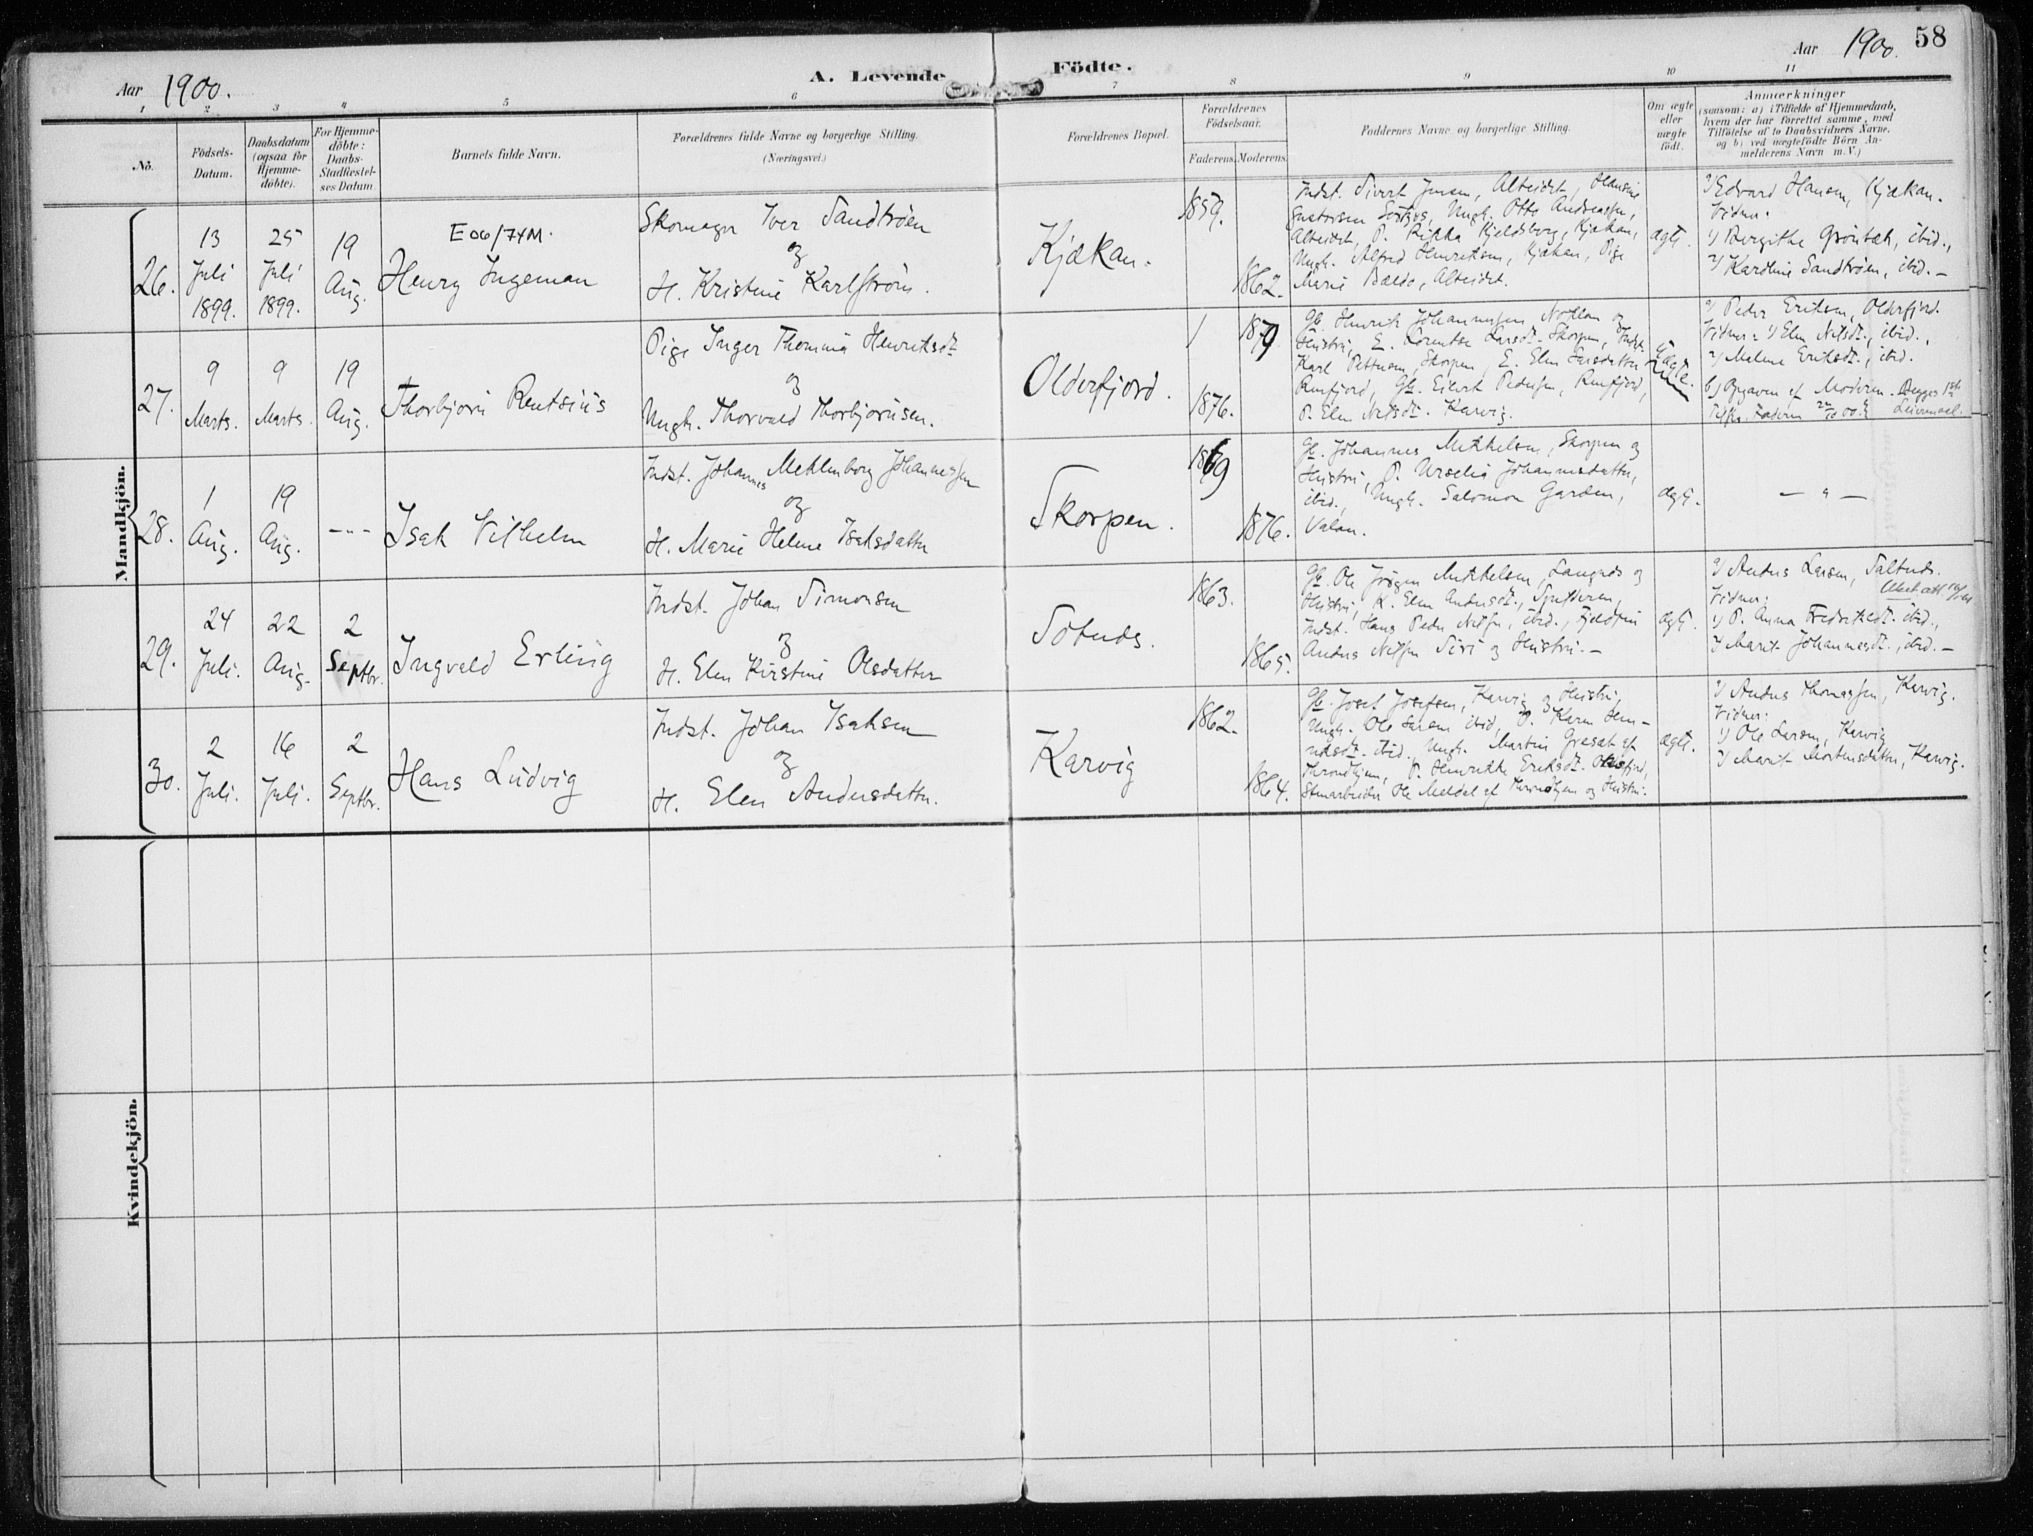 Aar 1900.
A. Levende Födte.
Aar 1900. 58
1 2 3 4 5 6 7 8 9 10 11
No.
Födsels-
Datum.
Daabsdatum
(ogsaa for
Hjemme-
döbte).
For Hjemme-
döbte:
Daabs-
Stadfæstel-
ses Datum
Barnets fulde Navn.
Forældrenes fulde Navne og borgerlige Stilling.
(Næringsvei.)
Forældrenes Bopæl.
Forældrenes
Födselsaar.
Faderens. Moderens.
Faddernes Navne og borgerlige Stilling.
Om ægte
eller
uægte
födt.
Anmærkninger
(saasom: a) i Tilfælde af Hjemmedaab,
hvem der har forrettet samme, med
Tilföielse af to Daabsvidners Navne,
og b) ved uægtefödte Börn An-
melderens Navn m. V.)
Mandkjön.
26.
13
Juli
1899.
25
Juli
1899.
19
Aug.
E 06/74M.
Henry Ingeman
Skomager Iver Sandtrøen
og
H. Kristine Karlstrøm.
Kjækan.
1859.
1862.
Indst. Sivert Jensen, Alteidet,
Ungk. Otto Andreassen,
Alteidet, P. Rikka Kjeldsberg, Kjækan,
Ungk. Alfred Henriksen, Kjækan, Pige
Marie Bældo, Alteidet.
ægte.
a) Edvard Hansen, Kjækan.
Vidner:
1) Bergithe Grönbæk, ibid.,
2) Karoline Sandtrøen, ibid. —
27.
9
Marts.
9
Marts.
19
Aug.
Thorbjørn Rentsius
Pige Inger Thomine Henriksdt.
og
Ungk. Thorvald Thorbjørnsen.
Olderfjord.
1879
1876.
Gb. Henrik Johannessen og
Hustru, E. Lorentse Larsdt. Skorpen, Indst.
Karl Pettersen, Skorpen, E. Elen Larsdatter
Gb. Eilert Pedersen,
P. Elen Nilsdt. Karvig.
Uægte.
a) Peder Eriksen, Olderfjord.
Vidner: 1) Elen Nilsdt., ibid.,
2) Malene Eriksdt., ibid.
b) Opgaven af Moderen. Begges 1ste
Leiermaal.
28.
1
Aug.
19
Aug.
---
Isak Vilhelm
Indst. Johannes Meklenborg Johannessen
og
H. Marie Helene Isaksdatter
Skorpen.
1869
1876.
Gb. Johannes Mikkelsen, Skorpen og
Hustru, P. Urselia Johannesdatter,
ibid., Ungk. Salomon Garden,
Valan.
ægte.
— " —
29.
24
Juli.
22
Aug.
2
Septbr.
Ingvald Erling
Indst. Johan Simonsen
og
H. Elen Kirstine Olsdatter
Sötnes.
1863.
1865.
Gb. Ole Jörgen Mikkelsen, Langnes og
Hustru, K. Elen Andersdt.,
Indst. Hans Peder Nilsen, ibid.,
Anders Nilsen Siri og Hustru. —
ægte.
a) Anders Larsen, Saltnes.
Vidner:
1) P. Anna Fredrikkedt. ibid.,
2) Marit Johannesdt., ibid. —
30.
2
Juli.
16
Juli.
2
Septbr.
Hans Ludvig
Indst. Johan Isaksen
og
H. Elen Andersdatter.
Karvig
1862.
1864.
Gb. Josef Josefsen, Karvig og Hustru,
Ungk. Ole Larsen ibid, P. Karen Hen-
riksdt. ibid., Ungk. Martin Gresét af
Throndhjem, P. Henrikke Eriksdt.
Stenarbeider Ole Meldal af Throndhjem og Hustru.
ægte.
a) Anders Thomassen, Karvig.
Vidner:
1) Ole Larsen, Karvig
2) Marit Mortensdatter, Karvig.
Kvindekjön.